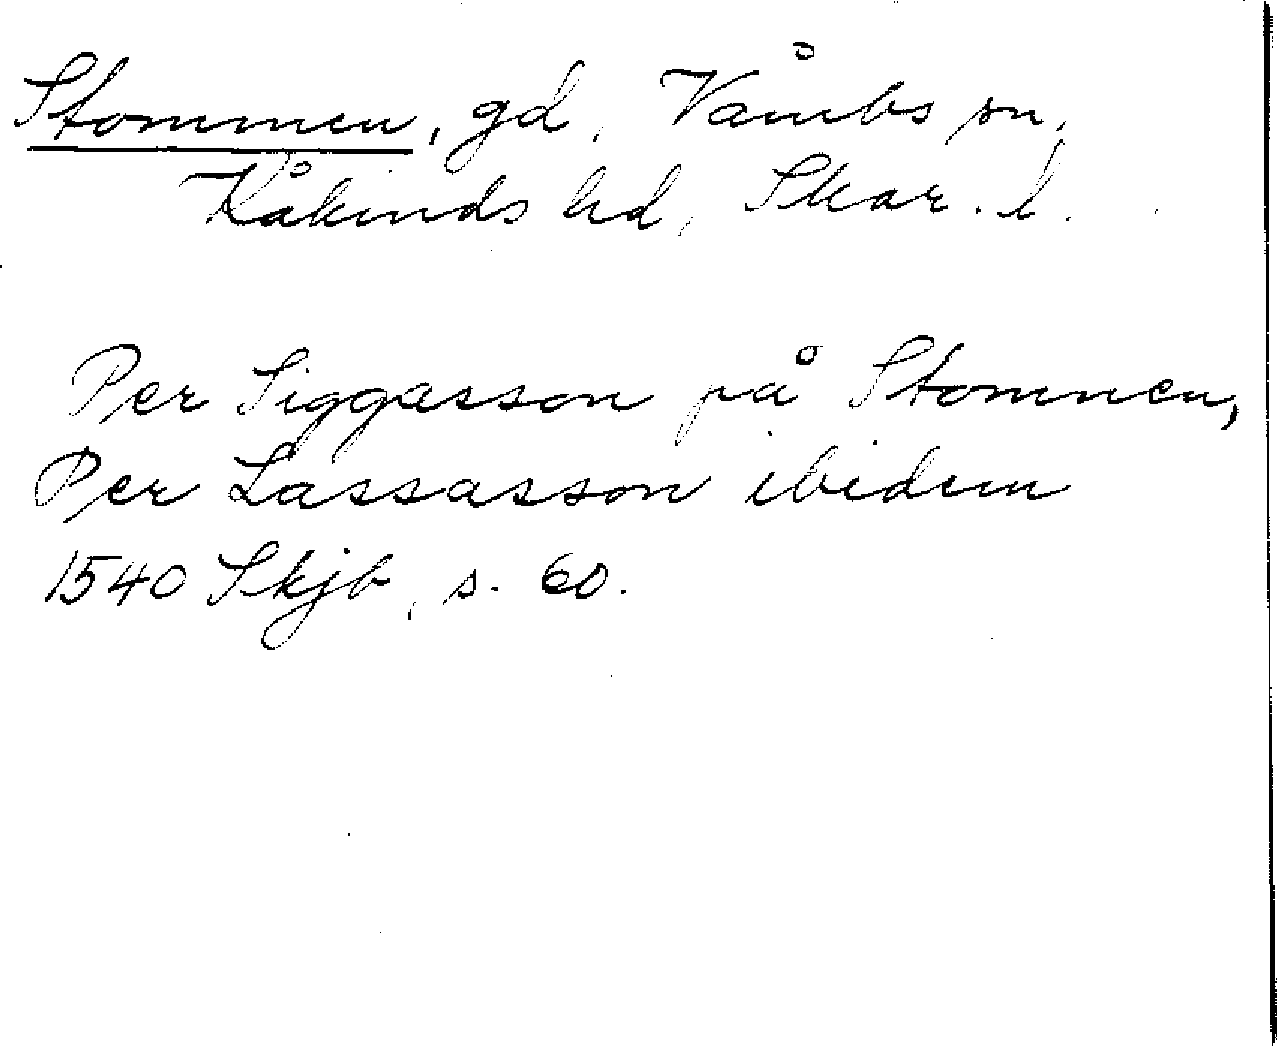 Stommen, gd, Våmbs sn,
Kåkinds hd, Skar. l.
Per Siggasson på Stommen,
Per Lassasson ibidem
1540 Skjb, s. 60.